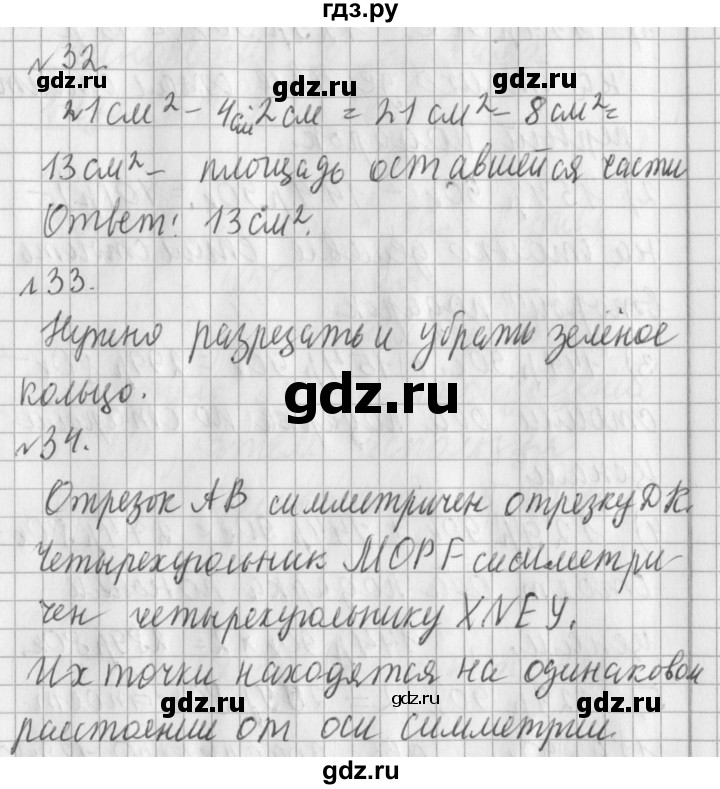 гдз.ру
№32.
gdz.ru gdz.ru gdz.ru
21 см² - 4см 2см = 21 см² - 8 см² =
13 см² - площадь оставшейся части
Ответ: 13 см².
№33.
Нужно разрезать и убрать зелёное
кольцо.
gdz.ru
№34.
Отрезок АВ симметричен отрезку ДК.
Четырехугольник МОРF симметри-
чен четырехугольнику XNEY.
Их точки находятся на одинаковом
gdz.ru gdz.ru gdz.ru
расстоянии от оси симметрии.
gdz.ru